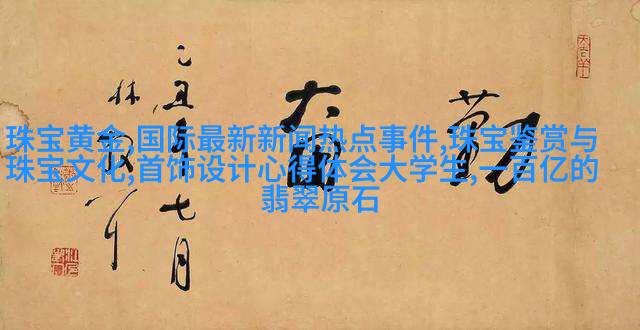 珠宝黄金,国际最新新闻热点事件,珠宝鉴赏与
珠宝文化,首饰设计心得体会大学生,一百亿的
翡翠原石
勤
丑年七月
林散耳